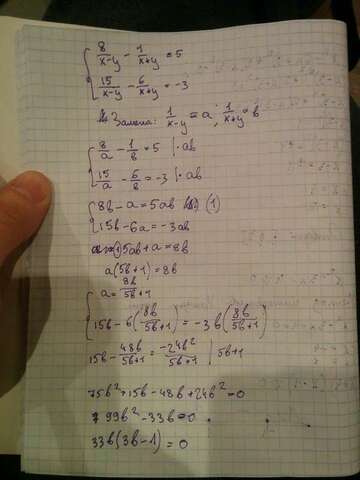 8/(x-y) - 1/(x+y) = 5
15/(x-y) - 6/(x+y) = -3
Замена: 1/(x-y) = a; 1/(x+y) = b
8/a - 1/b = 5 | · ab
15/a - 6/b = -3 | · ab
8b - a = 5ab (1)
15b - 6a = -3ab
5ab + a = 8b
a(5b+1) = 8b
a = 8b/(5b+1)
15b - 6(8b/(5b+1)) = -3b(8b/(5b+1))
15b - 48b/(5b+1) = -24b²/(5b+1) | 5b+1
75b² + 15b - 48b + 24b² = 0
99b² - 33b = 0
33b(3b-1) = 0